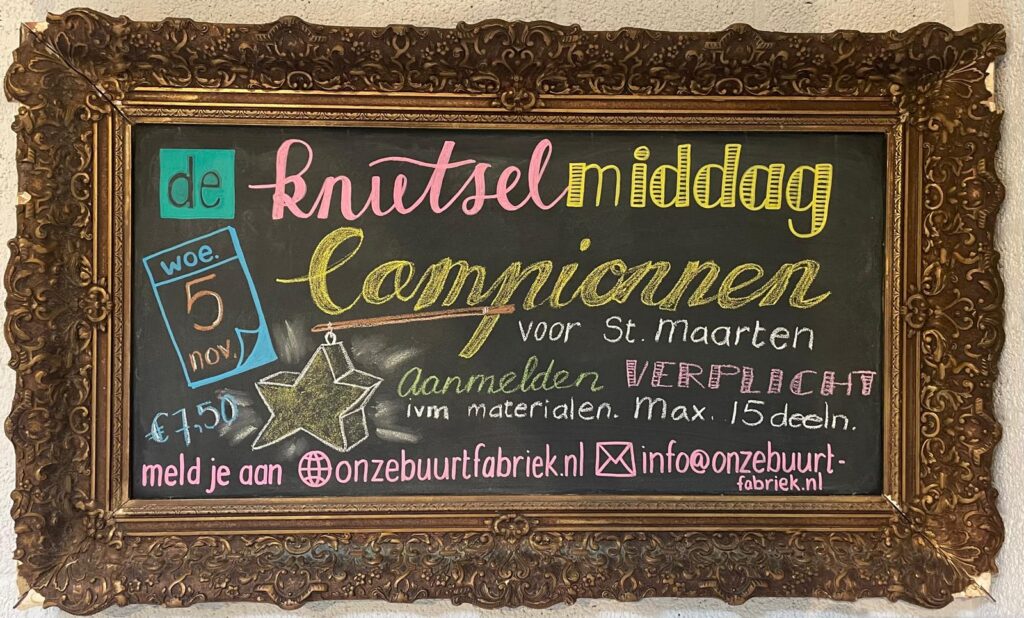 de knutselmiddag
Lampionnen
woe.
5
nov.
voor St. Maarten
aanmelden VERPLICHT
ivm materialen. Max. 15 deeln.
€7,50
meld je aan onzebuurtfabriek.nl info@onzebuurt-
fabriek.nl